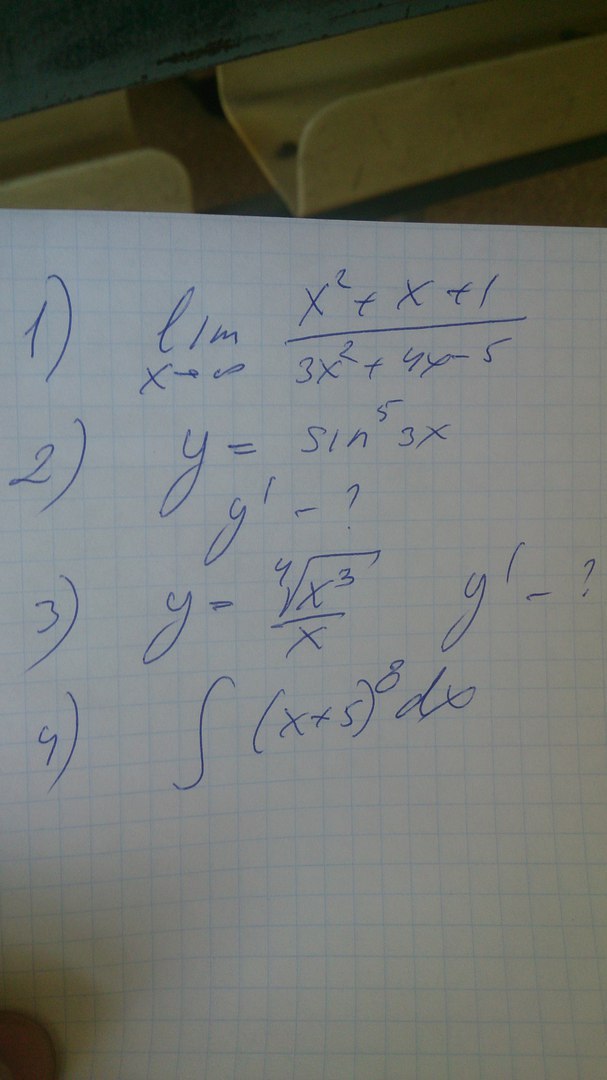 1) lim x→∞ (x² + x + 1)/(3x² + 4x - 5)
2) y = sin⁵ 3x
y' - ?
3) y = ⁴√x³/x y' - ?
4) ∫ (x+5)⁸ dx